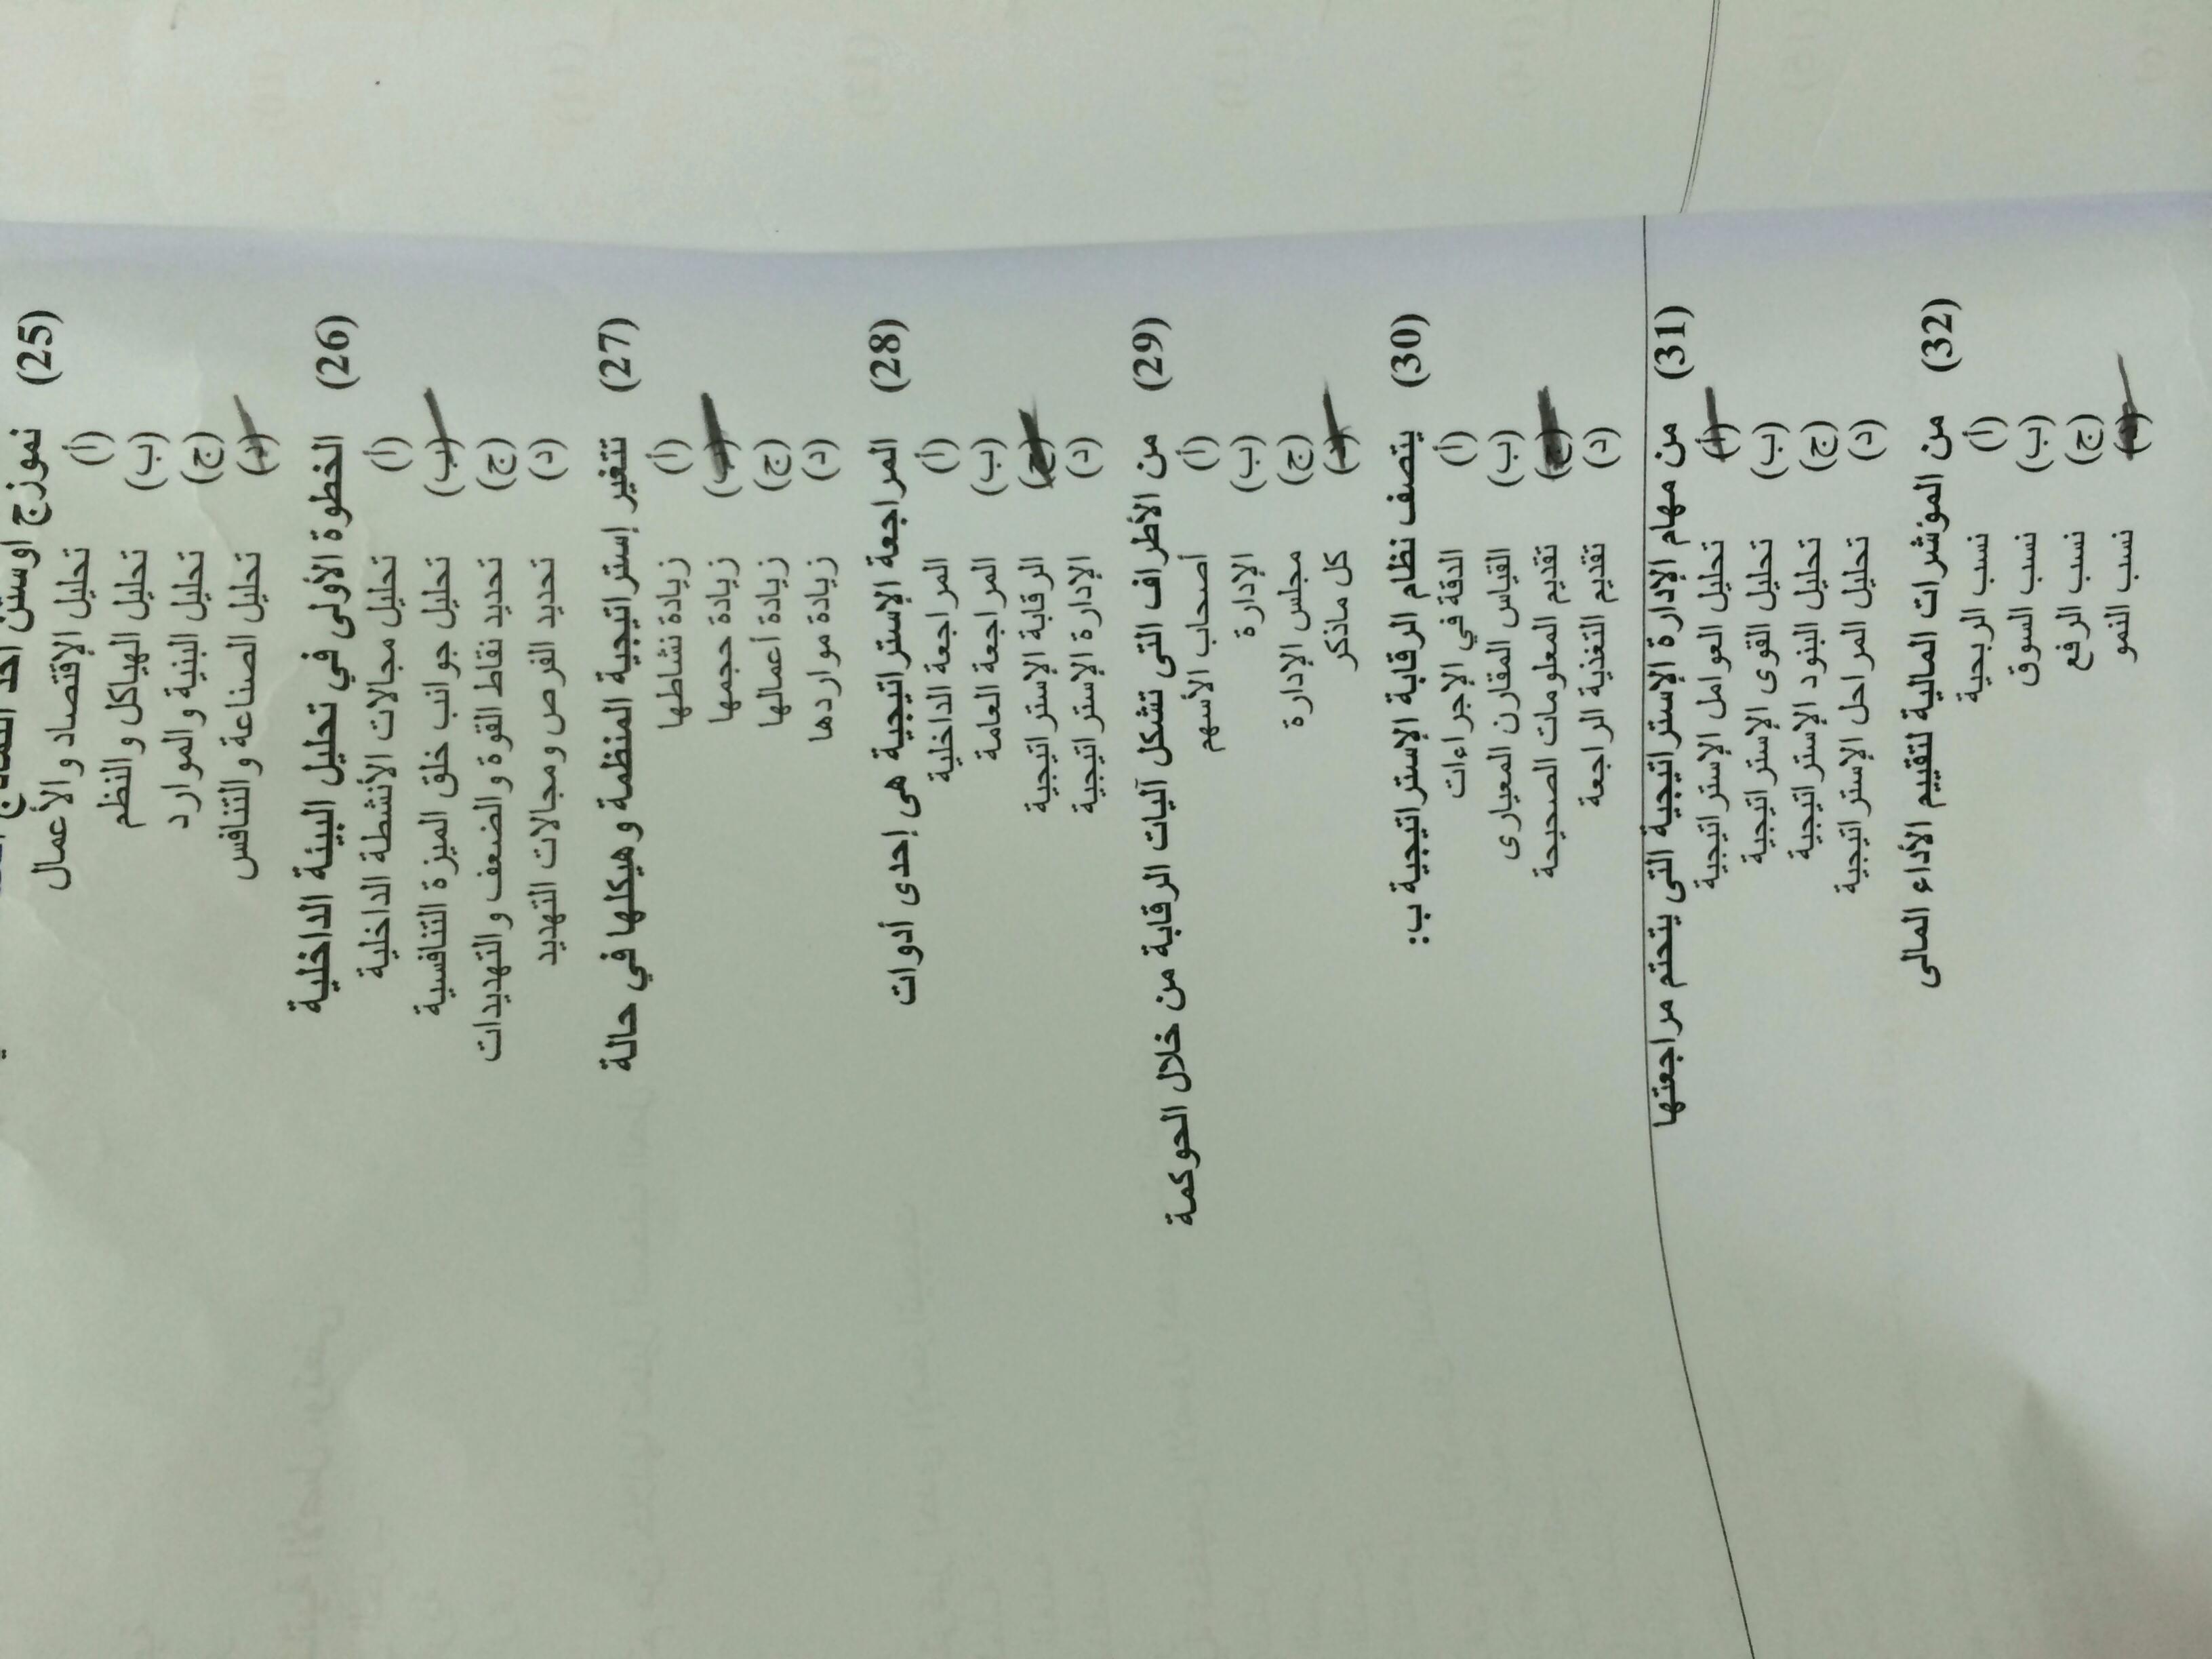 (25) نموزج اوستن احد النماذج
تحليل الإقتصاد والأعمال
(أ) تحليل الهياكل والنظم
(ب) تحليل البنية والموارد
(ج) تحليل الصناعة والتنافس
(د)
(26) الخطوة الأولى في تحليل البيئة الداخلية
(أ) تحليل مجالات الأنشطة الداخلية
(ب) تحليل جوانب خلق الميزة التنافسية
(ج) تحديد نقاط القوة والضعف والتهديدات
(د) تحديد الفرص ومجالات التهديد
(27) تتغير إستراتيجية المنظمة وهيكلها في حالة
(أ) زيادة نشاطها
(ب) زيادة حجمها
(ج) زيادة أعمالها
(د) زيادة مواردها
(28) المراجعة الإستراتيجية هى إحدى أدوات
(أ) المراجعة الداخلية
(ب) المراجعة العامة
(ج) الرقابة الإستراتيجية
(د) الإدارة الإستراتيجية
(29) من الأطراف التى تشكل آليات الرقابة من خلال الحوكمة
(أ) أصحاب الأسهم
(ب) الإدارة
(ج) مجلس الإدارة
(د) كل ماذكر
(30) يتصف نظام الرقابة الإستراتيجية ب:
(أ) الدقة في الإجراءات
(ب) القياس المقارن المعيارى
(ج) تقديم المعلومات الصحيحة
(د) تقديم التغذية الراجعة
(31) من مهام الإدارة الإستراتيجية التى يتحتم مراجعتها
(أ) تحليل العوامل الإستراتيجية
(ب) تحليل القوى الإستراتيجية
(ج) تحليل البنود الإستراتيجية
(د) تحليل المراحل الإستراتيجية
(32) من المؤشرات المالية لتقييم الأداء المالى
(أ) نسب الربحية
(ب) نسب السوق
(ج) نسب الرفع
(د) نسب النمو